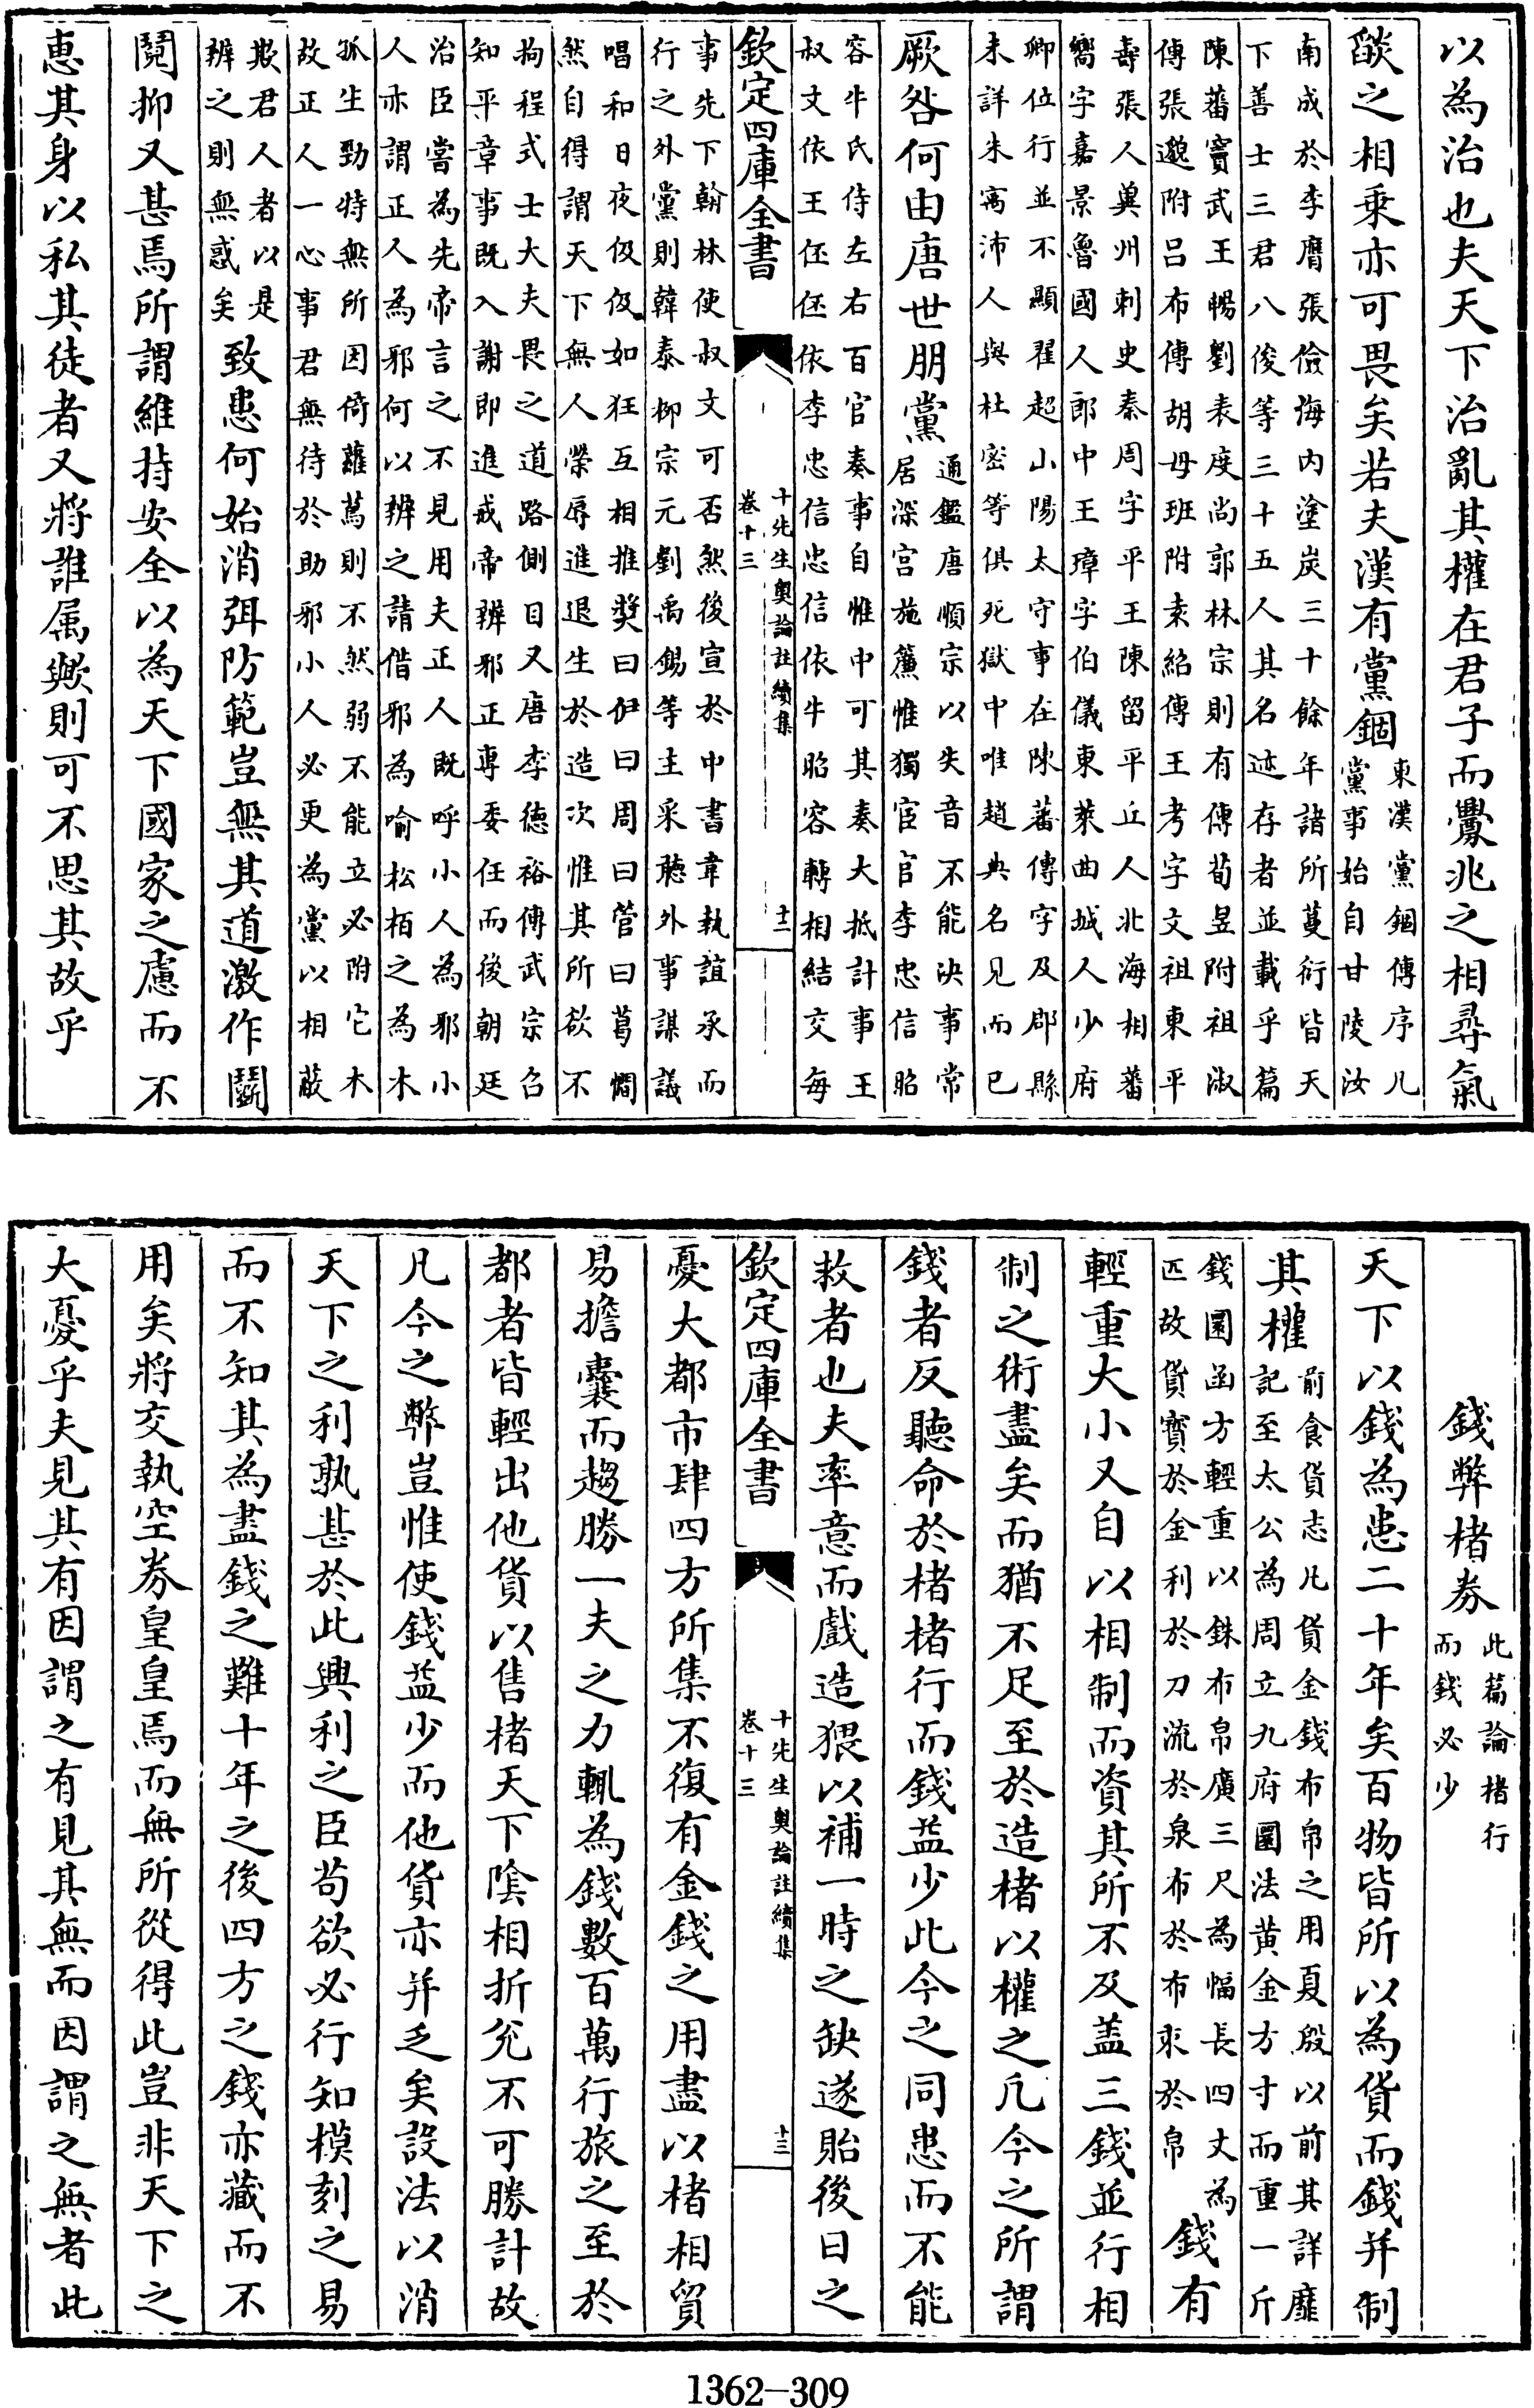 以為治也夫天下治亂其權在君子而釁兆之相尋氣
燄之相乘亦可畏矣若夫漢有黨錮
東漢黨錮傳序凡
黨事始自甘陵汝
南成於李膺張儉海内塗炭三十餘年諸所蔓衍皆天
下善士三君八俊等三十五人其名迹存者並載乎篇
陳蕃竇武王暢劉表度尚郭林宗則有傳荀昱附祖淑
傳張邈附吕布傳胡母班附袁紹傳王考字文祖東平
壽張人冀州刺史秦周字平王陳留平丘人北海相蕃
嚮字嘉景魯國人郎中王璋字伯儀東萊曲城人少府
卿位行並不顯翟超山陽太守事在陳蕃傳字及郡縣
未詳朱㝢沛人與杜密等俱死獄中唯趙典名見而已
厥咎何由唐世朋黨
通鑑唐順宗以失音不能決事常
居深宫施簾惟獨宦官李忠信昭
容牛氏侍左右百官奏事自惟中可其奏大抵計事王
叔文依王伾伾依李忠信忠信依牛昭容轉相結交每
欽定四庫全書
十先生奥論註續集
卷十三
十二
事先下翰林使叔文可否然後宣於中書韋執誼承而
行之外黨則韓泰柳宗元劉禹錫等主采聽外事謀議
唱和日夜伋伋如狂互相推奬曰伊曰周曰管曰葛僩
然自得謂天下無人榮辱進退生於造次惟其所欲不
拘程式士大夫畏之道路側目又唐李徳裕傳武宗召
知平章事既入謝即進戒帝辨邪正專委任而後朝廷
治臣嘗為先帝言之不見用夫正人既呼小人為邪小
人亦謂正人為邪何以辨之請借邪為喻松柏之為木
孤生勁特無所因倚蘿蔦則不然弱不能立必附它木
故正人一心事君無待於助邪小人必更為黨以相蔽
欺君人者以是
辨之則無惑矣
致患何始消弭防範豈無其道激作鬭
鬩抑又甚焉所謂維持安全以為天下國家之慮而不
惠其身以私其徒者又將誰属歟則可不思其故乎
錢弊楮券
此篇論楮行
而錢必少
天下以錢為患二十年矣百物皆所以為貨而錢并制
其權
前食貨志凡貨金錢布帛之用夏殷以前其詳靡
記至太公為周立九府圜法黄金方寸而重一斤
錢圜函方輕重以銖布帛廣二尺為幅長四丈為
匹故貨寳於金利於刀流於泉布於布束於帛
錢有
輕重大小又自以相制而資其所不及盖三錢並行相
制之術盡矣而猶不足至於造楮以權之凡今之所謂
錢者反聽命於楮楮行而錢益少此今之同患而不能
救者也夫率意而戲造猥以補一時之缺遂貽後日之
欽定四庫全書
十先生奥論註續集
卷十三
十三
憂大都市肆四方所集不復有金錢之用盡以楮相貿
易擔囊而趨勝一夫之力輒為錢數百萬行旅之至於
都者皆輕出他貨以售楮天下隂相折兊不可勝計故
凡今之弊豈惟使錢益少而他貨亦并乏矣設法以消
天下之利孰甚於此興利之臣苟欲必行知模刻之易
而不知其為盡錢之難十年之後四方之錢亦藏而不
用矣將交執空券皇皇焉而無所從得此豈非天下之
大憂乎夫見其有因謂之有見其無而因謂之無者此
1362-309